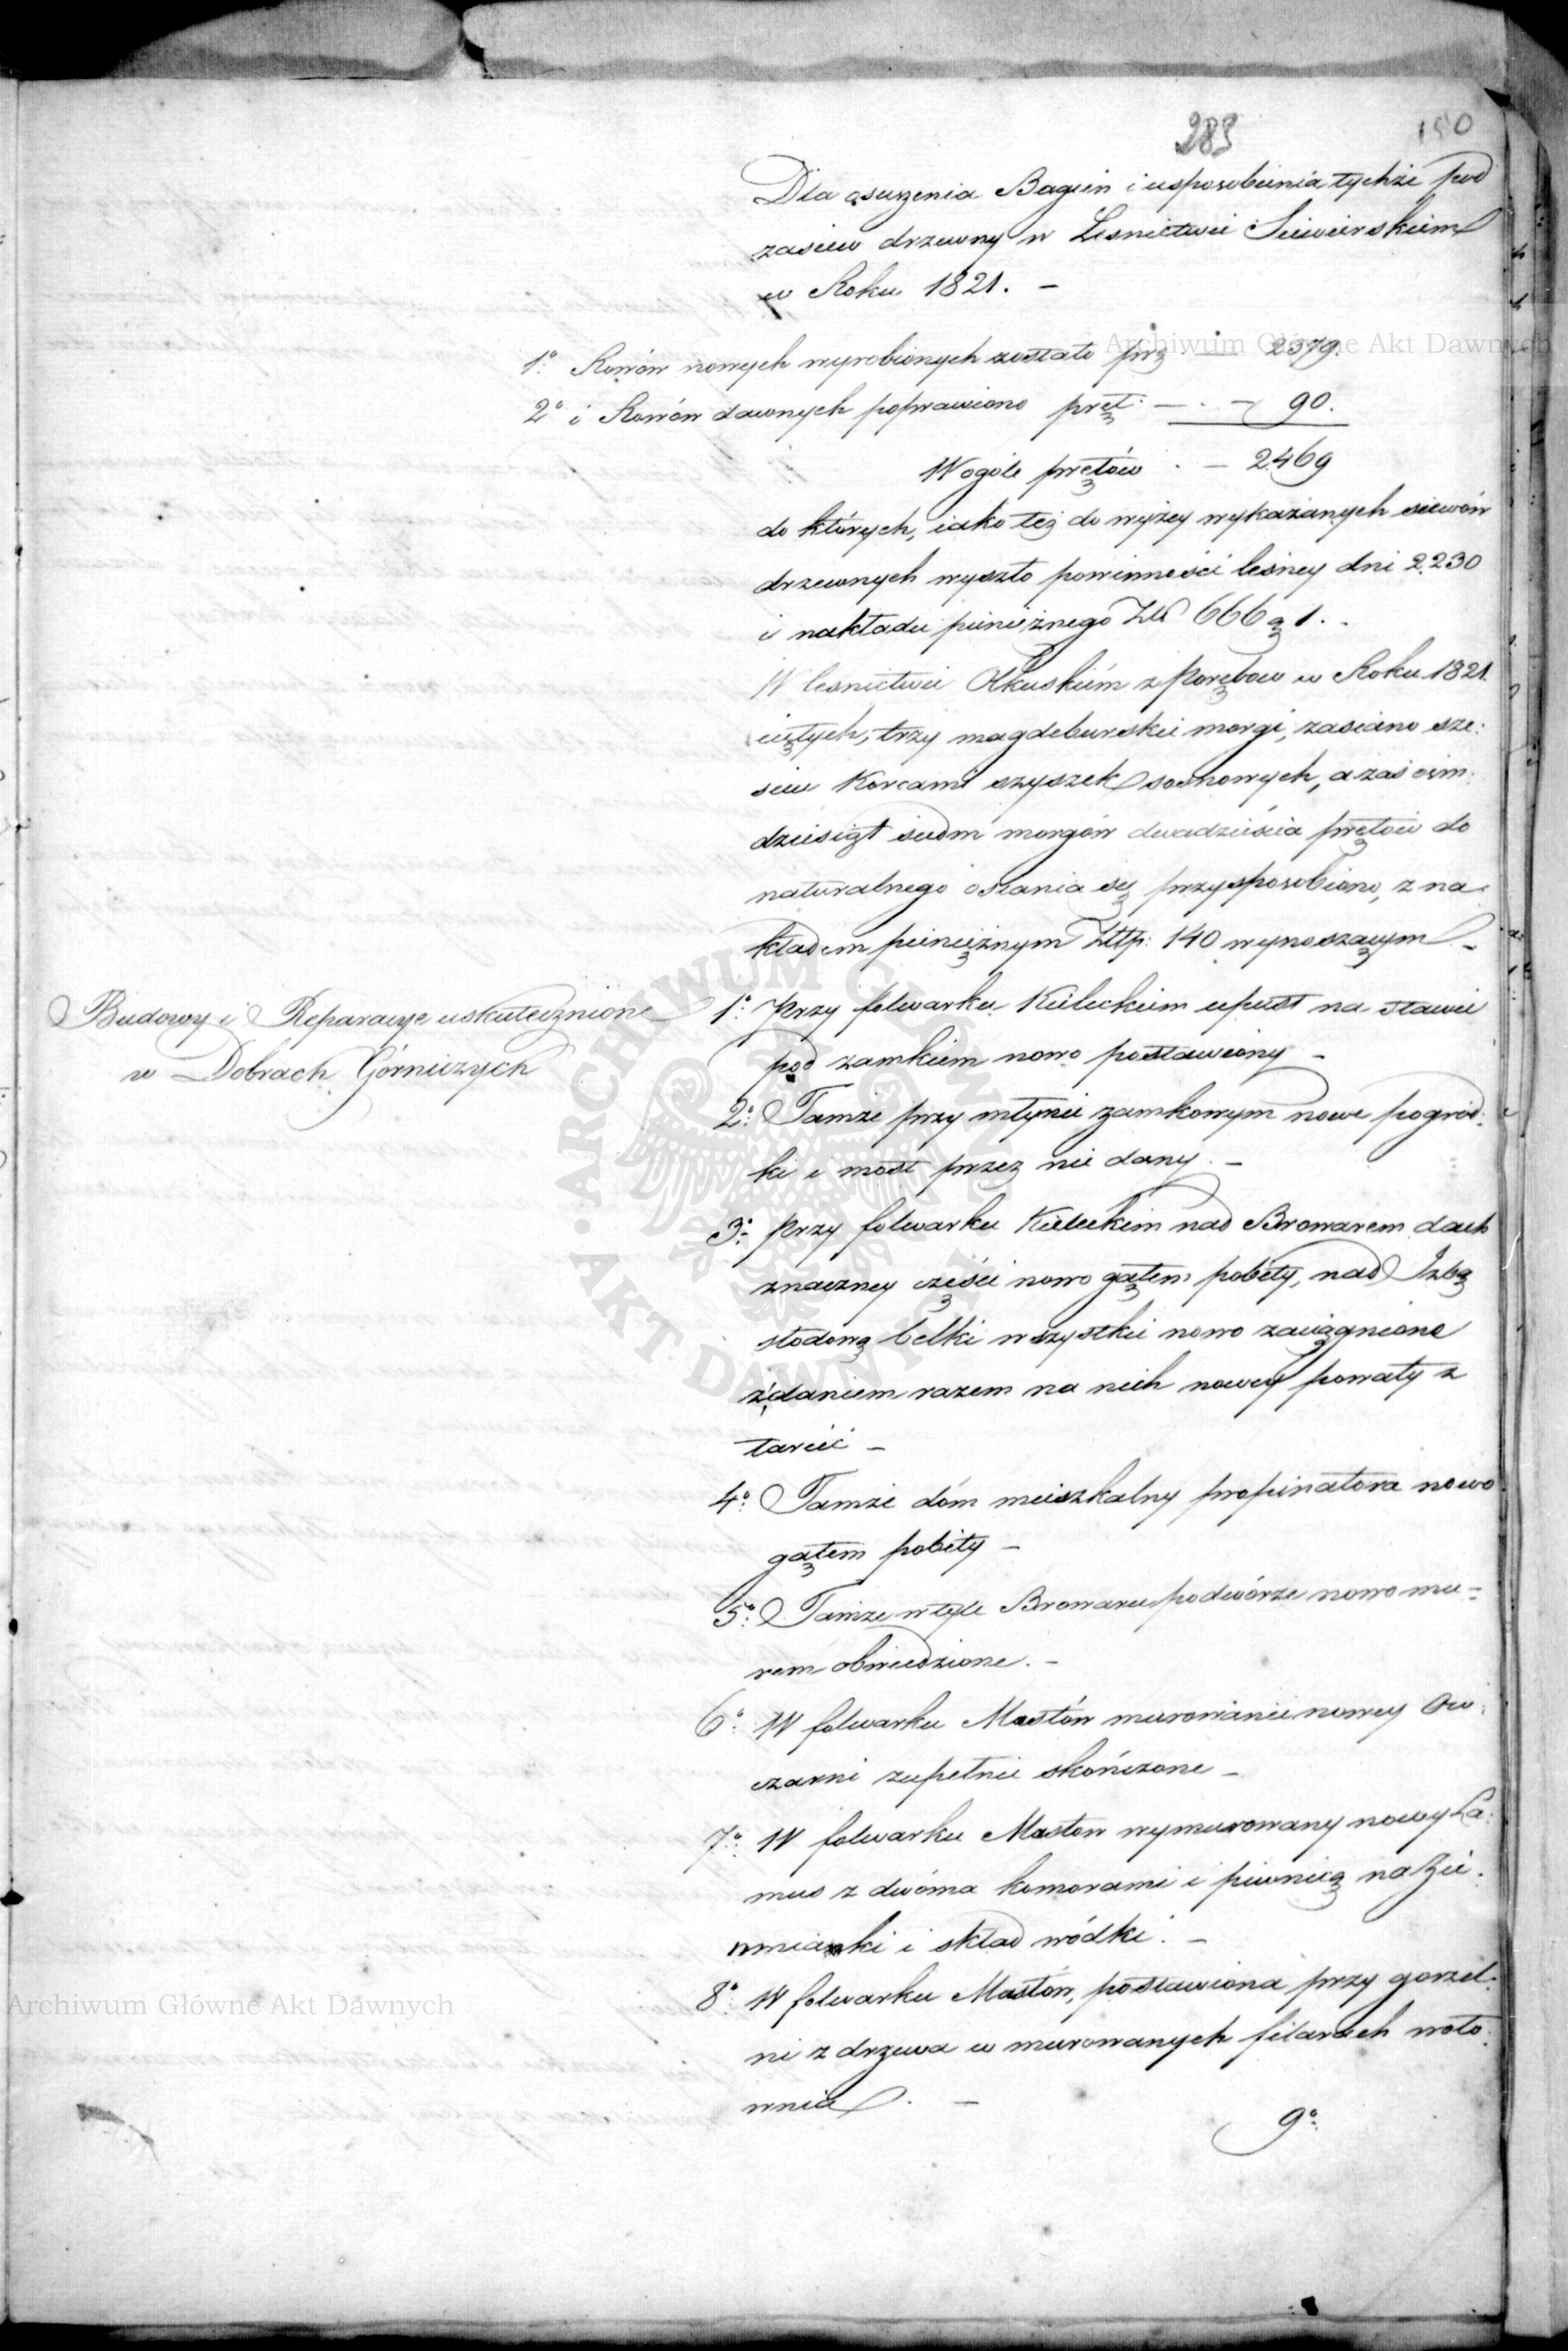 289
150
Dla osuszenia Bagien i usposobienia tychże pod
zasiew drzewny w Lesnictwie Siewierskiem
w Roku 1821. –
1o Rowów nowych wyrobionych zostało prę. – 2379.
2o i Rowów dawnych poprawiono pręt. – . – 90.
W ogóle prętów . – 2469
do których, iako też do wyżey wykazanych siewów
drzewnych wyszło powinności leśney dni 2230
i nakładu pieniężnego Złt 666 g 1. –
W lesnictwie Olkuskiém z Porębow w Roku 1821.
ciętych, trzy magdeburskie morgi, zasiano sze-
sciu Korcami szyszek sosnowych, a zaś ośm-
dziesiąt siedm morgów dwadzieścia prętów do
naturalnego osiania się przysposobiono, z na-
kładem pieniężnym Złtp: 140 wynoszącym –
Budowy i Reparacye uskutecznione
w Dobrach Górniczych
1o Przy folwarku Kieleckim upust na stawie
pod zamkiem nowo postawiony –
2o Tamże przy młynie zamkowym nowe pogród-
ki i most przez nie dany. –
3o Przy folwarku Kieleckim nad Browarem dach
znaczney części nowo gątem pobity, nad Izbą
słodową belki wszystkie nowo zaciągnione
z daniem razem na nich nowey powały z
tarcic –
4o Tamże dóm mieszkalny propinatora nowo
gątem pobity –
5o Tamże w tyle Browaru podwórze nowo mu-
rem obwiedzione. –
6o W folwarku Masłów murowanie nowey Ow-
czarni zupełnie skończone –
7o W folwarku Masłow wymurowany nowy La-
mus z dwóma komorami i piwnicą na Zie-
mniaki i skład wódki. –
8o W folwarku Masłów, postawiona przy gorzel-
ni z drzewa w murowanych filarach woło-
wnia . –
9o
Archiwum Główne Akt Dawnych
Archiwum Główne Akt Dawnych
ARCHIWUM GŁÓWNE AKT DAWNYCH